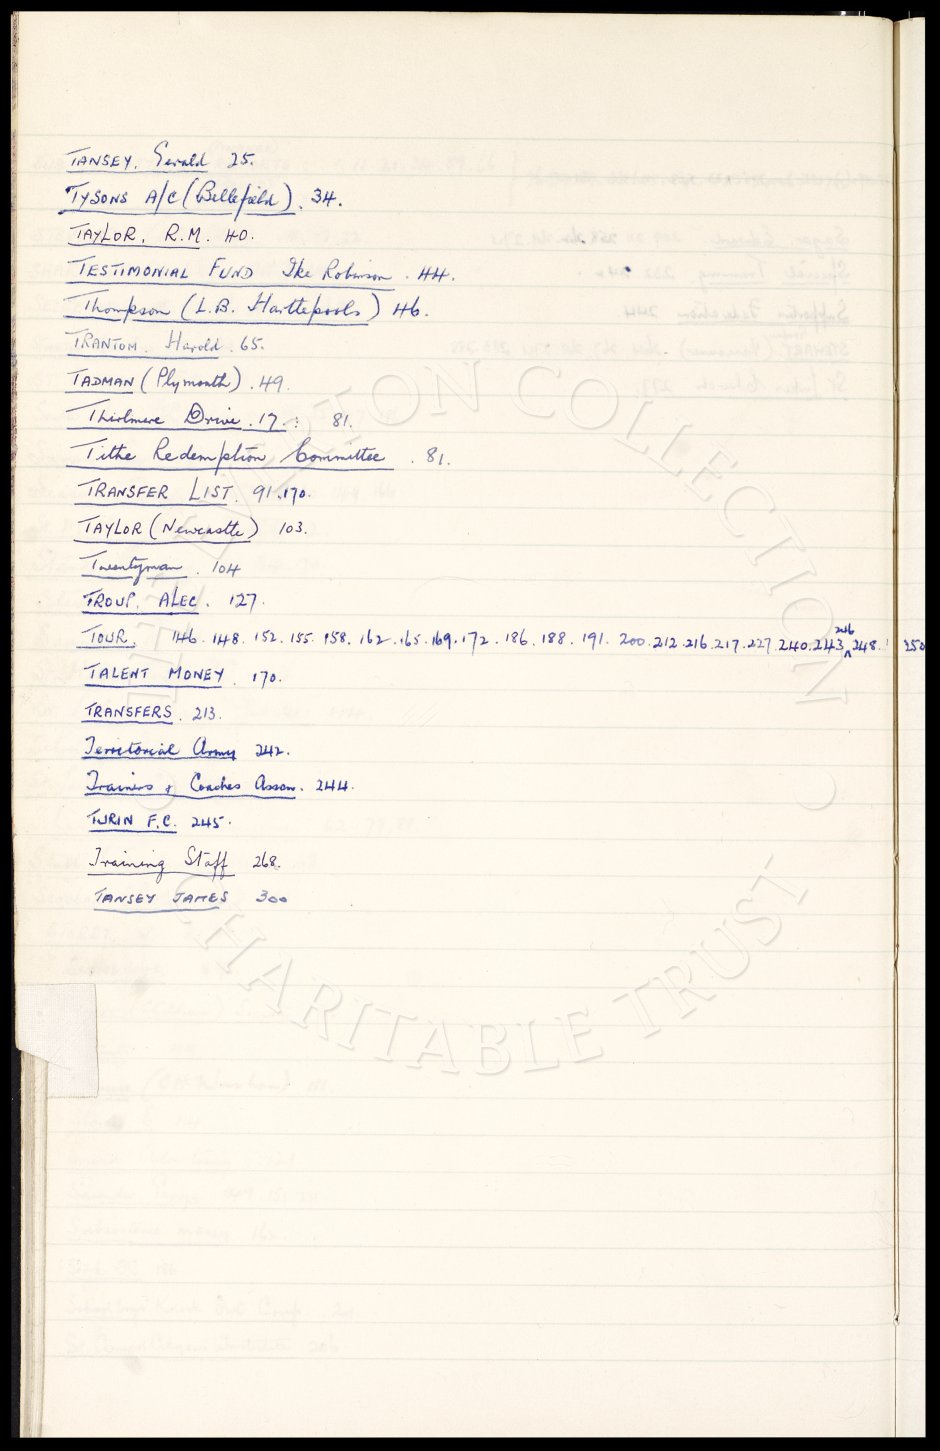 TANSEY. Gerald 25.
TYSONS A/C (Bellefield). 34.
TAYLOR. R.M. 40.
TESTIMONIAL FUND Ike Robinson. 44.
Thompson (L.B. Hartlepools) 46.
TRANTOM. Harold. 65.
TADMAN (Plymouth). 49.
Thirlmere Drive. 17. : 81.
Tithe Redemption Committee. 81.
TRANSFER LIST. 91. 170.
TAYLOR (Newcastle) 103.
Twentyman. 104
TROUP. ALEC. 127.
TOUR. 146. 148. 152. 155. 158. 162. 165. 169. 172. 186. 188. 191. 200. 212. 216. 217. 227. 240. 243. 246 248. 250
TALENT MONEY. 170.
TRANSFERS. 213.
Territorial Army 242.
Trainers & Coaches Asson. 244.
TURIN F.C. 245.
Training Staff 268.
TANSEY JAMES 300
THE EVERTON COLLECTION
CHARITABLE TRUST